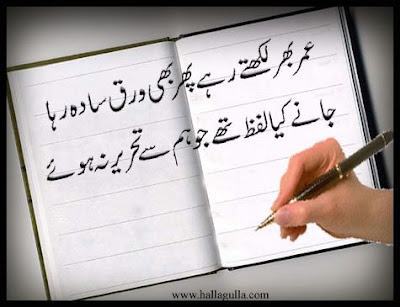 عمر بھر لکھتے رہے پھر بھی ورق سادہ رہا
جانے کیا لفظ تھے جو ہم سے تحریر نہ ہوئے
www.hallagulla.com